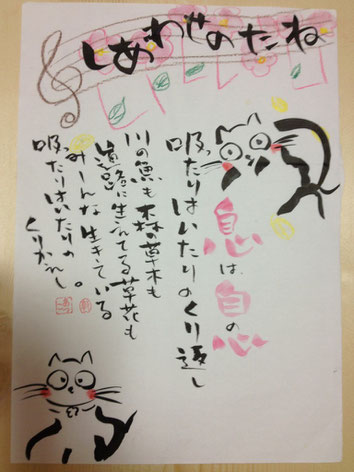 しあわせのたね
息は自の心
吸ったりはいたりのくり返し
川の魚も森の草木も
道路に生えてる草花も
みーんな生きている
吸ったりはいたりの
くりかえし。